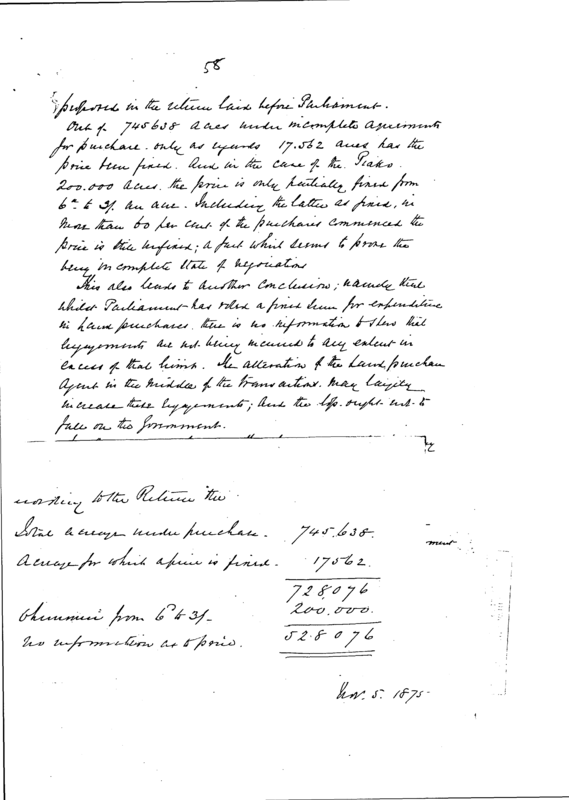 58
in the return laid before Parliament.
Out of 745638 acres under incomplete agreements
for purchase. only as regards 17.562 acres has the
price been fixed. And in the case of the Piako.
200.000 acres. the price is only partially fixed from
6d to 3/. an acre. Including the latter as fixed, in
more than 60 per cent of the purchases commenced the
price is still unfixed; a fact which seems to prove the
being incomplete state of negociations
This also leads to another conclusion; namely that
whilst Parliament has voted a fixed sum for expenditure
in Land purchases. there is no information to show that
engagements are not being incurred to any extent in
excess of that limit. The alteration of the Land purchase
Agent in the middle of the transactions. may largely
increase these engagements; and the loss ought not to
fall on the Government.
by
according to the Return the
Total acreage under purchase. 745.638.
ment
Acreage for which a price is fixed. 17562.
728,076
from 6d to 3/- 200.000.
no information as to price. 528076
Nov. 5. 1875-